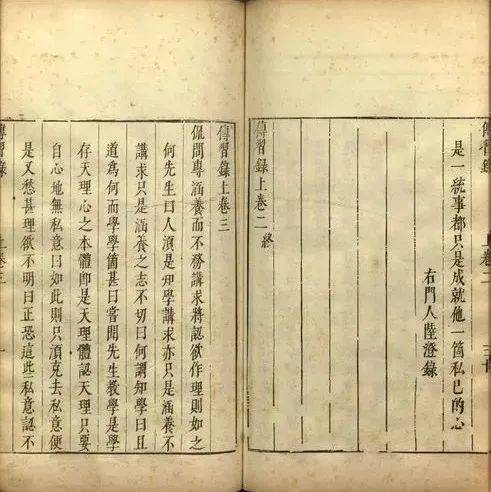 傳習錄 上卷二
是一統事都只是成就他一箇私已的心
右門人陸澄錄
傳習錄上卷二終
傳習錄上卷三
侃問專涵養而不務講求將認欲作理則如之
何先生曰人須是知學講求亦只是涵養不
講求只是涵養之志不切曰何謂知學曰且
道爲何而學學箇甚曰嘗聞先生教學是學
存天理心之本體即是天理體認天理只要
自心地無私意曰如此則只須克去私意便
是又愁甚理欲不明曰正恐這些私意認不
傳習錄 上卷三 一